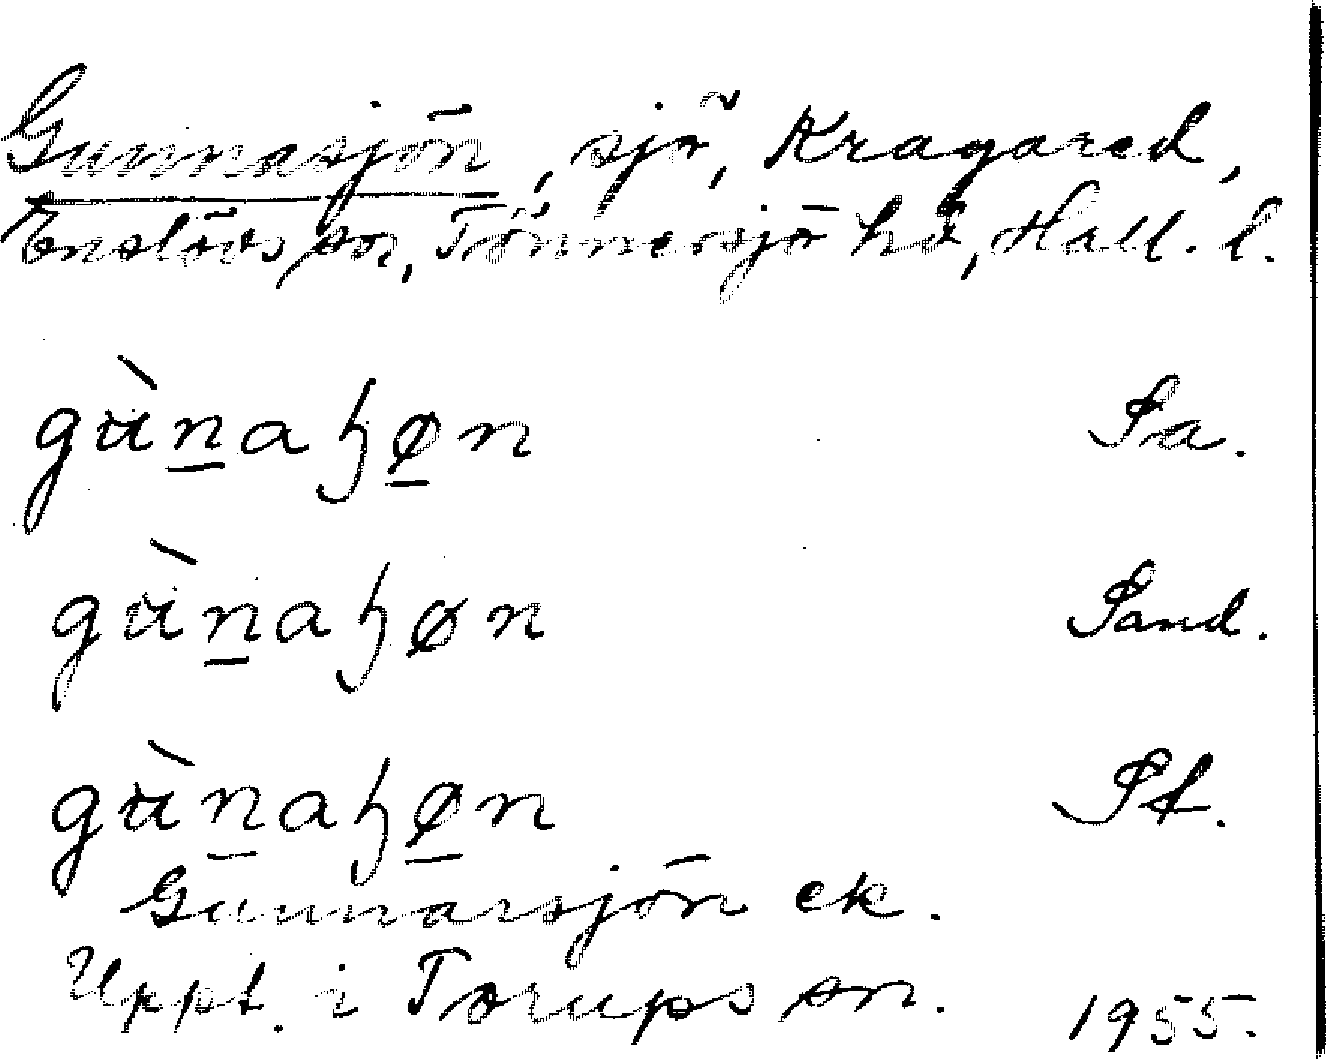 Gunnasjön, sjö, Kragared,
Enslövs sn, Tönnersjö hd, Hall. l.
gùn̲aꜧø̲n Sa.
gùn̲aꜧøn Sand.
gùn̲aꜧø̲n St.
Gunnarsjön ek.
Uppt. i Torups sn. 1955.